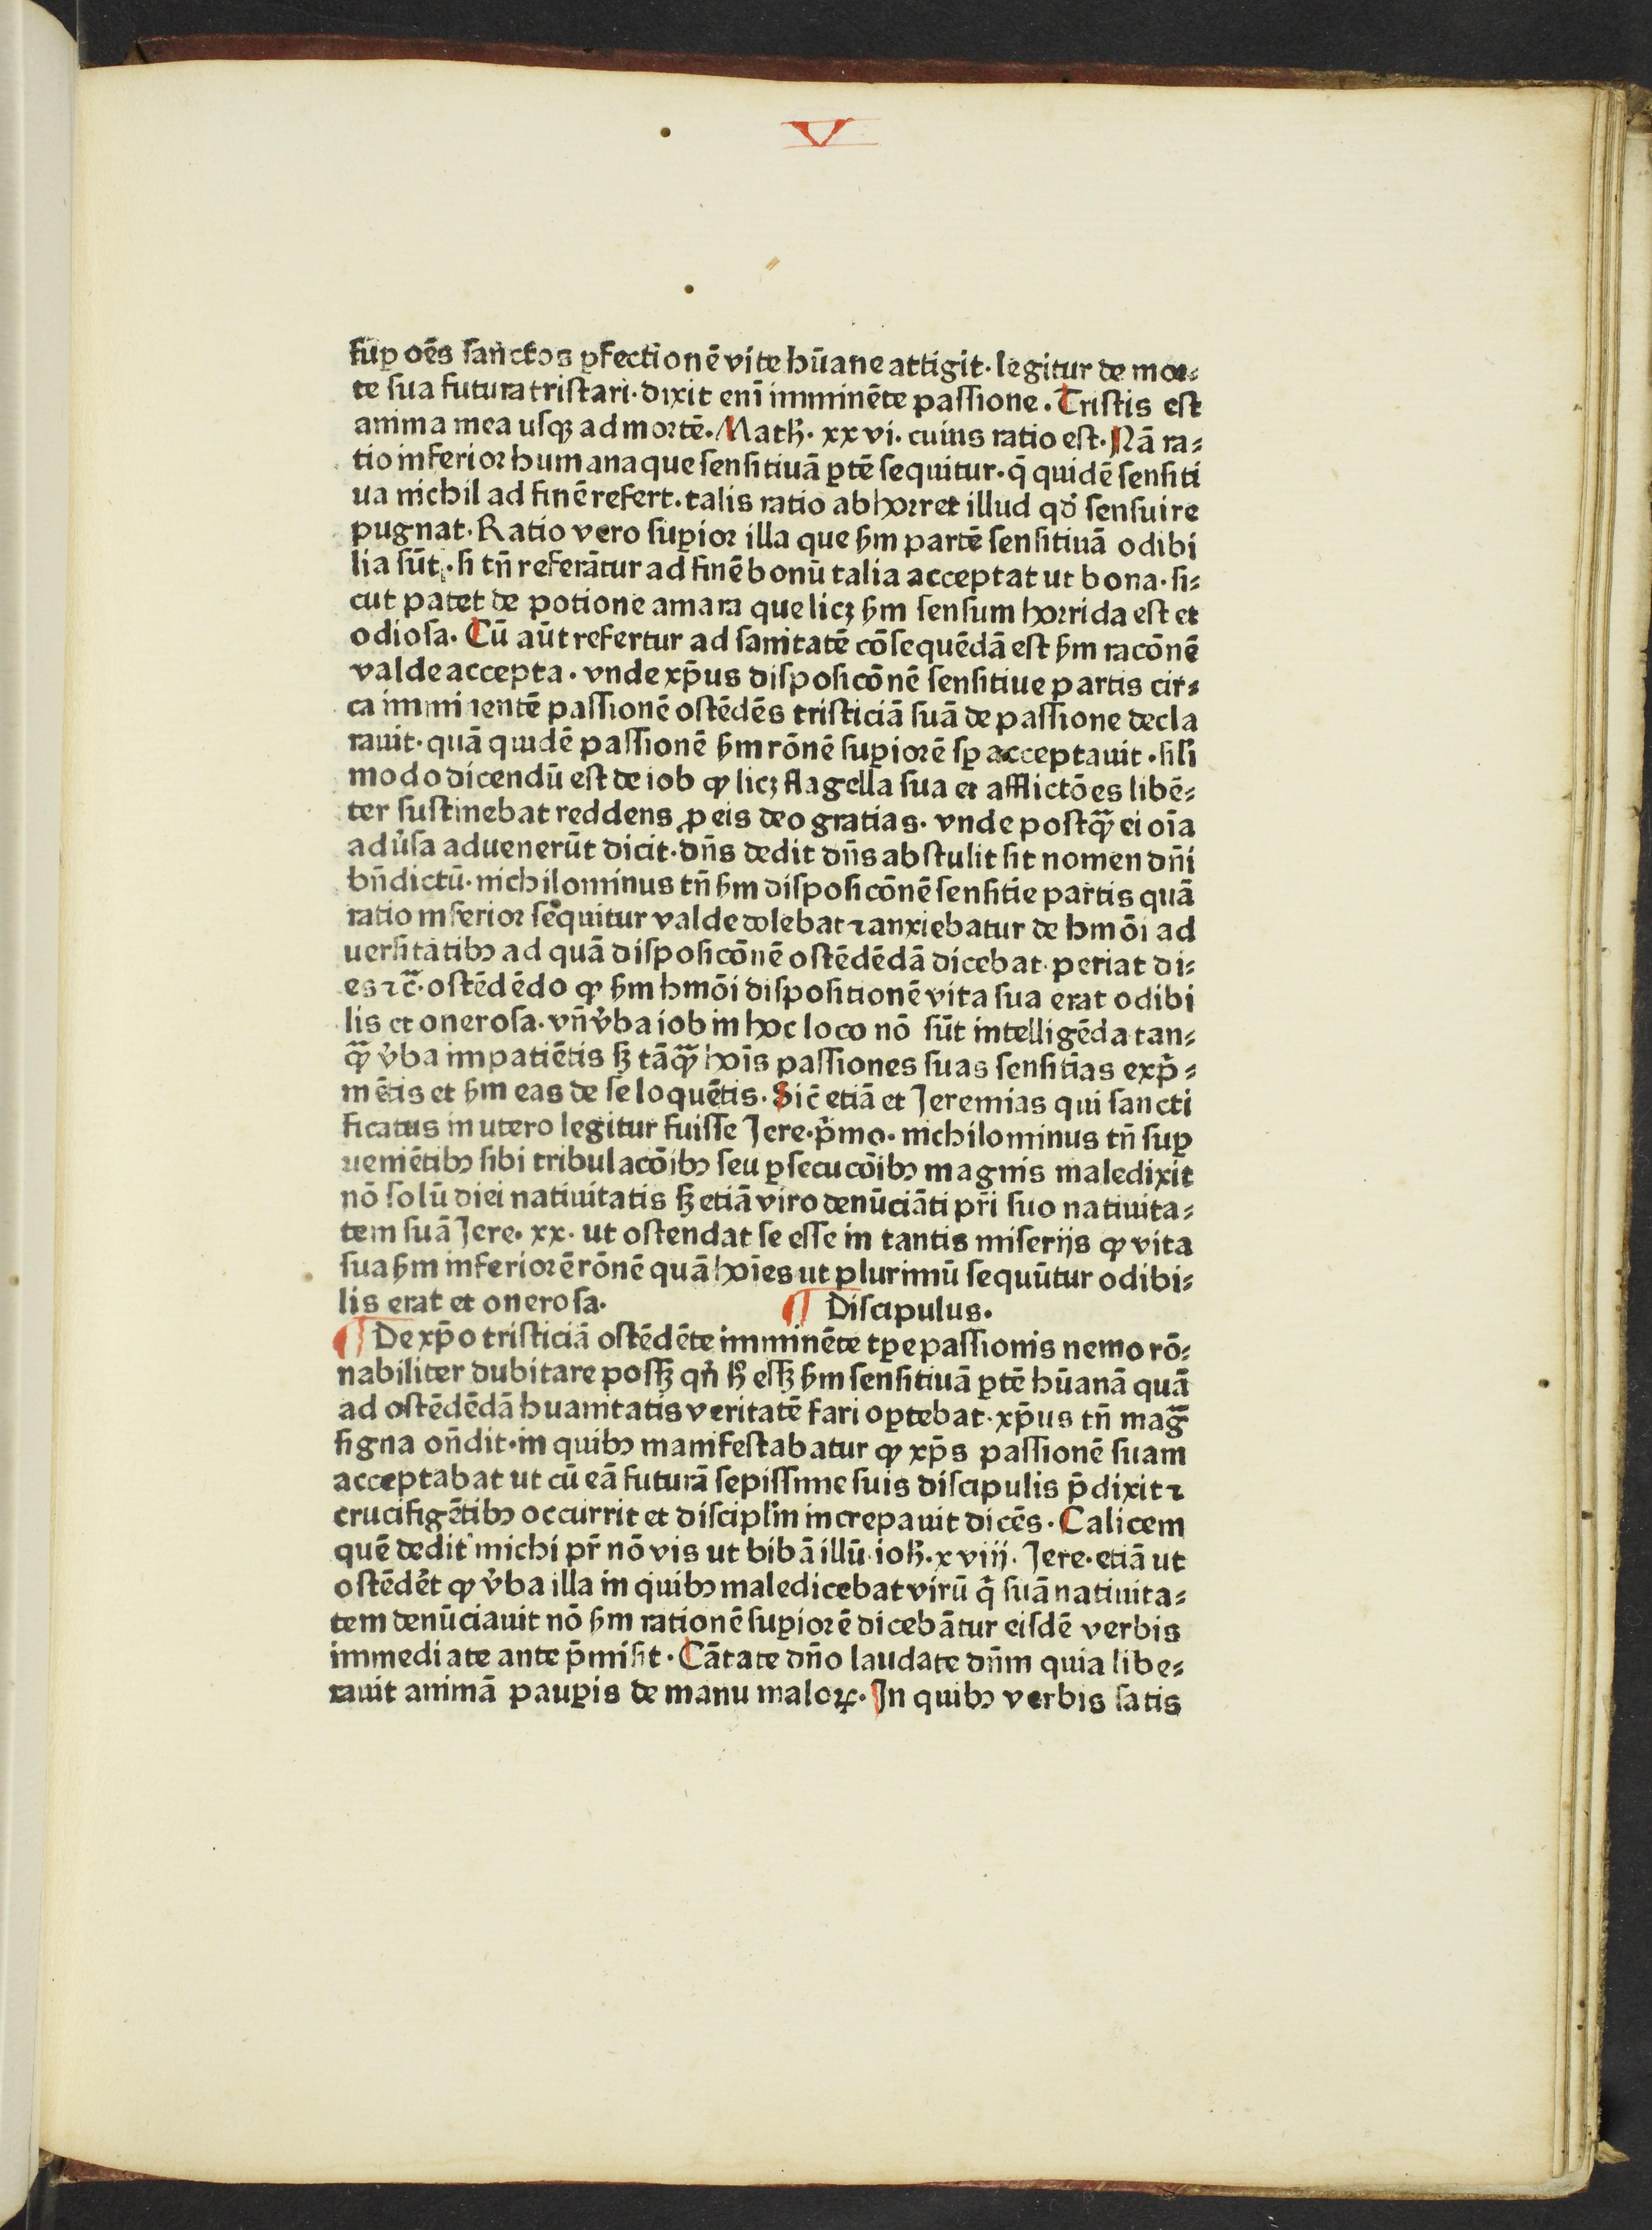 V
suꝑ oēs sanctos ꝑfectionē vite hūane attigit· legitur de mor⸗
te sua futura tristari· dixit enī imminēte passione. Tristis est
anima mea usqꝫ ad mortē. Math̄. xxvi. cuius ratio est. Nā ra⸗
tio inferior humana que sensitiuā ꝑtē sequitur· q̄ quidē sensiti
ua nichil ad finē refert. talis ratio abhorret illud qd̓ sensui re
pugnat. Ratio vero suꝑior illa que ẜm partē sensitiuā odibi
lia sūt· si tn̄ referātur ad finē bonū talia acceptat ut bona· si⸗
cut patet de potione amara que licꝫ ẜm sensum horrida est et
odiosa. Cū aūt refertur ad sanitatē cōsequēdā est ẜm racōnē
valde accepta · vnde xp̄us disposicōnē sensitiue partis cir⸗
ca imminentē passionē ostēdēs tristiciā suā de passione decla
rauit· quā quidē passionē ẜm rōnē suꝑiorē sꝑ acceptauit · sil̓i
modo dicendū est de iob ꝙ licꝫ flagella sua et afflictōes libē⸗
ter sustinebat reddens ꝓ eis deo gratias· vnde postqꝫ̄ ei oīa
adu̓sa aduenerūt dicit· dn̄s dedit dn̄s abstulit sit nomen dn̄i
bn̄dictū· nichilominus tn̄ ẜm disposicōnē sensitie partis quā
ratio inferior sequitur valde dolebat ⁊ anxiebatur de hmōi ad
uersitatibꝰ ad quā disposicōnē ostēdēdā dicebat· periat di⸗
es ⁊c̄· ostēdēdo ꝙ ẜm hmōi dispositionē vita sua erat odibi
lis et onerosa· vn̄ v̓ba iob in hoc loco nō sūt intelligēda tan⸗
qꝫ̄ v̓ba impatiētis sꝫ tāqꝫ̄ hoīs passiones suas sensitīas exp̄⸗
mētis et ẜm eas de se loquētis. Sic̄ etiā et Jeremias qui sancti
ficatus in utero legitur fuisse Jere·p̄mo· nichilominus tn̄ suꝑ
ueniētibꝰ sibi tribulacōibꝰ seu ꝑsecucōibꝰ magnis maledixit
nō solū diei natiuitatis sꝫ etiā viro denūciāti pr̄i suo natiuita⸗
tem suā Jere· xx· ut ostendat se esse in tantis miserijs ꝙ vita
sua ẜm inferiorē rōnē quā hoīes ut plurimū sequūtur odibi⸗
lis erat et onerosa.
¶ Discipulus.
¶ De xp̄o tristiciā ostēdēte imminēte tꝑe passionis nemo rō⸗
nabiliter dubitare possꝫ qn̓ h̓ essꝫ ẜm sensitiuā ꝑtē hūanā quā
ad ostēdēdā huanitatis veritatē fari oꝑtebat· xp̄us tn̄ mag̅
signa on̄dit·in quibꝰ manifestabatur ꝙ xp̄s passionē suam
acceptabat ut cū eā futurā sepissime suis discipulis p̄dixit ⁊
crucifigētibꝰ occurrit et discipl̓m increpauit dicēs. Calicem
quē dedit michi pr̄ nō vis ut bibā illū· ioh̄· xviij. Jere· etiā ut
ostēdēt ꝙ v̓ba illa in quibꝰ maledicebat virū q̓ suā natiuita⸗
tem denūciauit nō ẜm rationē suꝑiorē dicebātur eisdē verbis
immediate ante p̄misit· Cātate dn̄o laudate dn̄m quia libe⸗
rauit animā pauꝑis de manu maloꝝ. In quibꝰ verbis satis